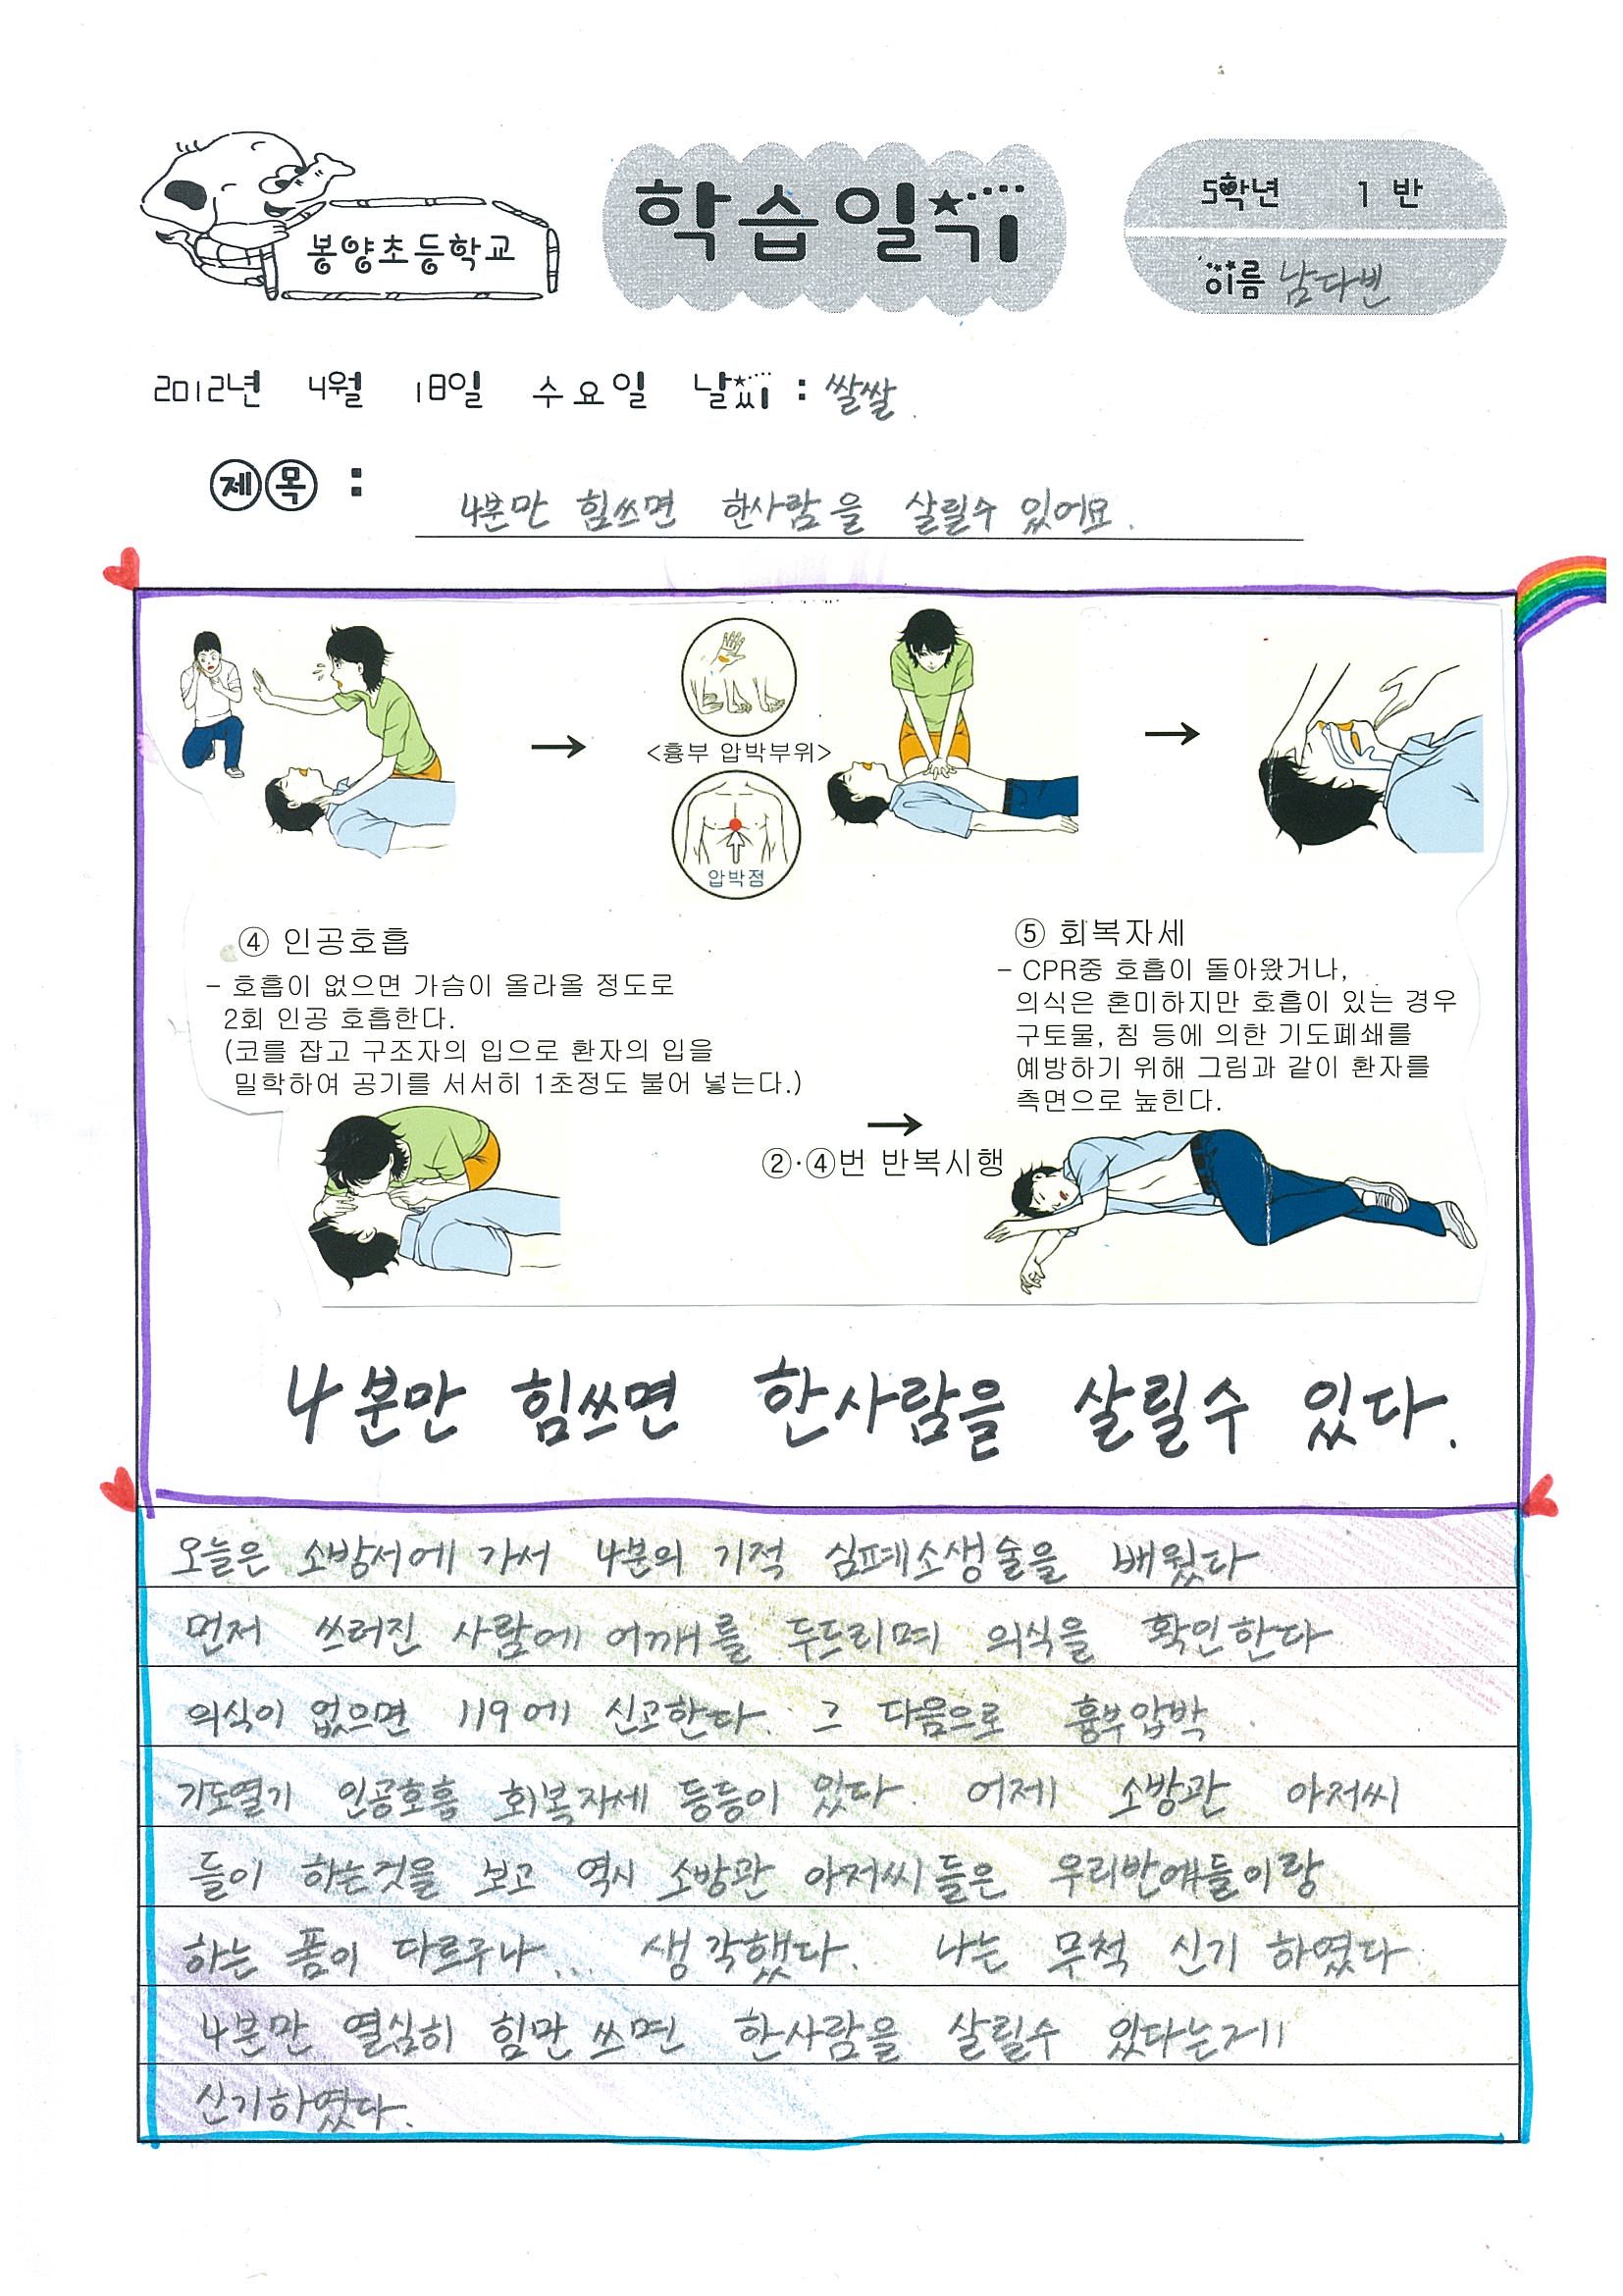 봉양초등학교
학습일기
5학년 1반
이름 남다빈
2012년 4월 18일 수요일 날씨 : 쌀쌀
제목 : 4분만 힘쓰면 한사람을 살릴수 있어요.
<흉부 압박부위>
압박점
④ 인공호흡
- 호흡이 없으면 가슴이 올라올 정도로
2회 인공 호흡한다.
(코를 잡고 구조자의 입으로 환자의 입을
밀학하여 공기를 서서히 1초정도 불어 넣는다.)
⑤ 회복자세
- CPR중 호흡이 돌아왔거나,
의식은 혼미하지만 호흡이 있는 경우
구토물, 침 등에 의한 기도폐쇄를
예방하기 위해 그림과 같이 환자를
측면으로 눞힌다.
②·④번 반복시행
4분만 힘쓰면 한사람을 살릴수 있다.
오늘은 소방서에 가서 4분의 기적 심폐소생술을 배웠다
먼저 쓰러진 사람에 어깨를 두드리며 의식을 확인한다
의식이 없으면 119에 신고한다. 그 다음으로 흉부압박
기도열기 인공호흡 회복자세 등등이 있다. 어제 소방관 아저씨
들이 하는것을 보고 역시 소방관 아저씨들은 우리반얘들이랑
하는 폼이 다르구나... 생각했다. 나는 무척 신기 하였다.
4분만 열심히 힘만 쓰면 한사람을 살릴수 있다는게
신기하였다.